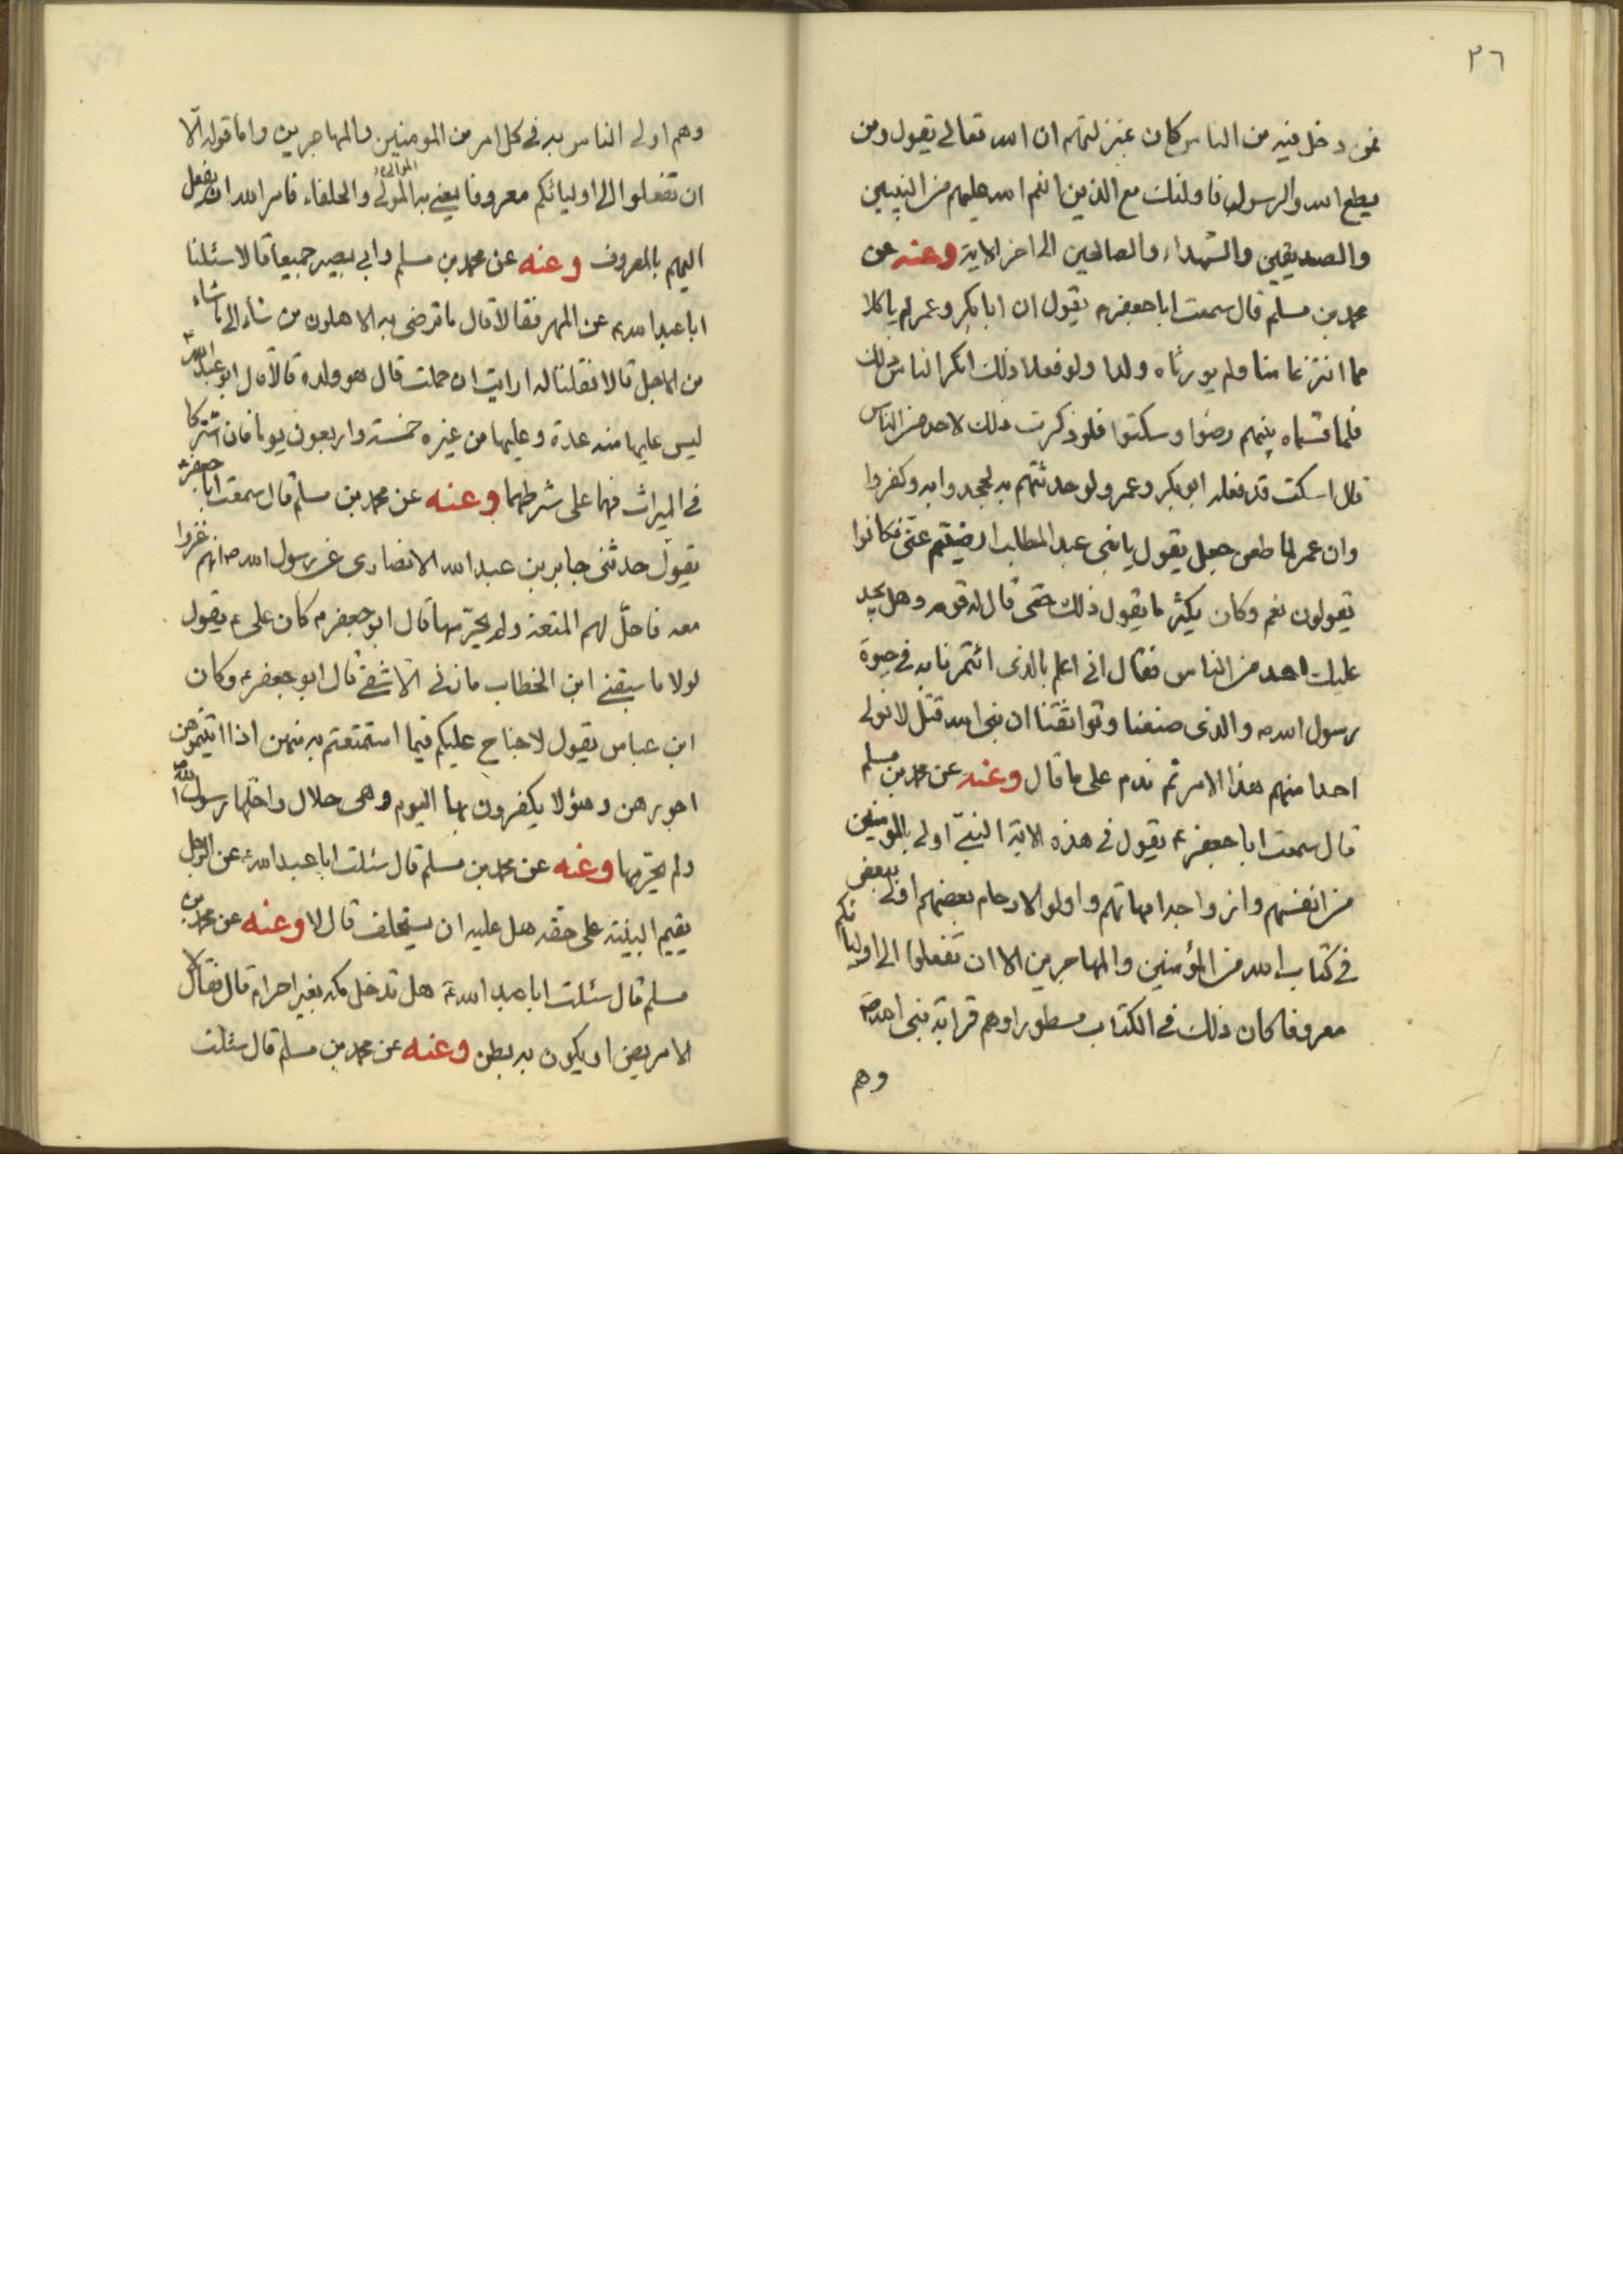 ٢٦
فمن دخل فيه من الناس كان بمنزلتهم ان الله تعالى يقول ومن
يطع الله والرسول فاولئك مع الذين انعم الله عليهم من النبيين
والصديقين والشهداء والصالحين الى اخر الاية وعنه عن
محمد بن مسلم قال سمعت ابا جعفر ع يقول ان ابا بكر وعمر لم ياكلا
مما انتزعا منا ولم يورثاه ولدا ولو فعلا ذلك انكر الناس ذلك
فلما قسماه بينهم رضوا وسكتوا فلو ذكرت ذلك لاحد من الناس
قال اسكت قد فعله ابو بكر وعمر ولو حدثتهم به لجحدوا به وكفروا
وان عمر لما طعن جعل يقول يا بنى عبد المطلب ارضيتم عنى فكانوا
يقولون نعم وكان يكثر ما يقول ذلك حتى قال له قوم وهل يجد
عليك احد من الناس فقال انى اعلم بالذى ائتمرنا به في حيوة
رسول الله ص والذى صنعنا وتواثقنا ان نبى الله قتل لا نولى
احدا منهم هذا الامر ثم ندم على ما قال وعنه عن محمد بن مسلم
قال سمعت ابا جعفر ع يقول في هذه الاية النبيّ اولى بالمومنين
من انفسهم وازواجه امهاتهم واولو الارحام بعضهم اولى ببعض
في كتاب الله من المؤمنين والمهاجرين الا ان تفعلوا الى اوليائكم
معروفا كان ذلك في الكتاب مسطورا وهم قرابة نبى الله ص
وهم
وهم اولى الناس به في كل امر من المومنين والمهاجرين واما قوله الّا
ان تفعلوا الى اوليائكم معروفا يعنى به المولى والحلفاء فامر الله ان يفعل
الموالى
اليهم بالمعروف وعنه عن محمد بن مسلم وابى بصير جميعا قالا سئلنا
ابا عبد الله ع عن المهر فقالا قال ما ترضى به الاهلون من شاء الى ما شاء
من الاجل قالا فقلنا له ارايت ان حملت قال هو ولده قالا قال ابو عبد الله ع
ليس عليها منه عدة وعليها من غيره خمسة واربعون يوما فان اشتركا
في الميراث فهما على شرطهما وعنه عن محمد بن مسلم قال سمعت ابا جعفر ع
يقول حدثنى جابر بن عبد الله الانصارى عن رسول الله ص انهم غزوا
معه فاحلّ لهم المتعة ولم يحرّمها قال ابو جعفر ع كان على ع يقول
لولا ما سبقنى ابن الخطاب ما زنى الّا شقى قال ابو جعفر ع وكان
ابن عباس يقول لا جناح عليكم فيما استمتعتم به منهن اذا اتيتموهن
اجورهن وهؤلا يكفرون بها اليوم وهى حلال واحلّها رسول الله ص
ولم يحرّمها وعنه عن محمد بن مسلم قال سئلت ابا عبد الله ع عن الرجل
يقيم البينة على حقه هل عليه ان يستحلف قال لا وعنه عن محمد بن
مسلم قال سئلت ابا عبد الله ع هل تدخل مكة بغير احرام قال فقال لا
الا مريض او يكون به بطن وعنه عن محمد بن مسلم قال سئلت